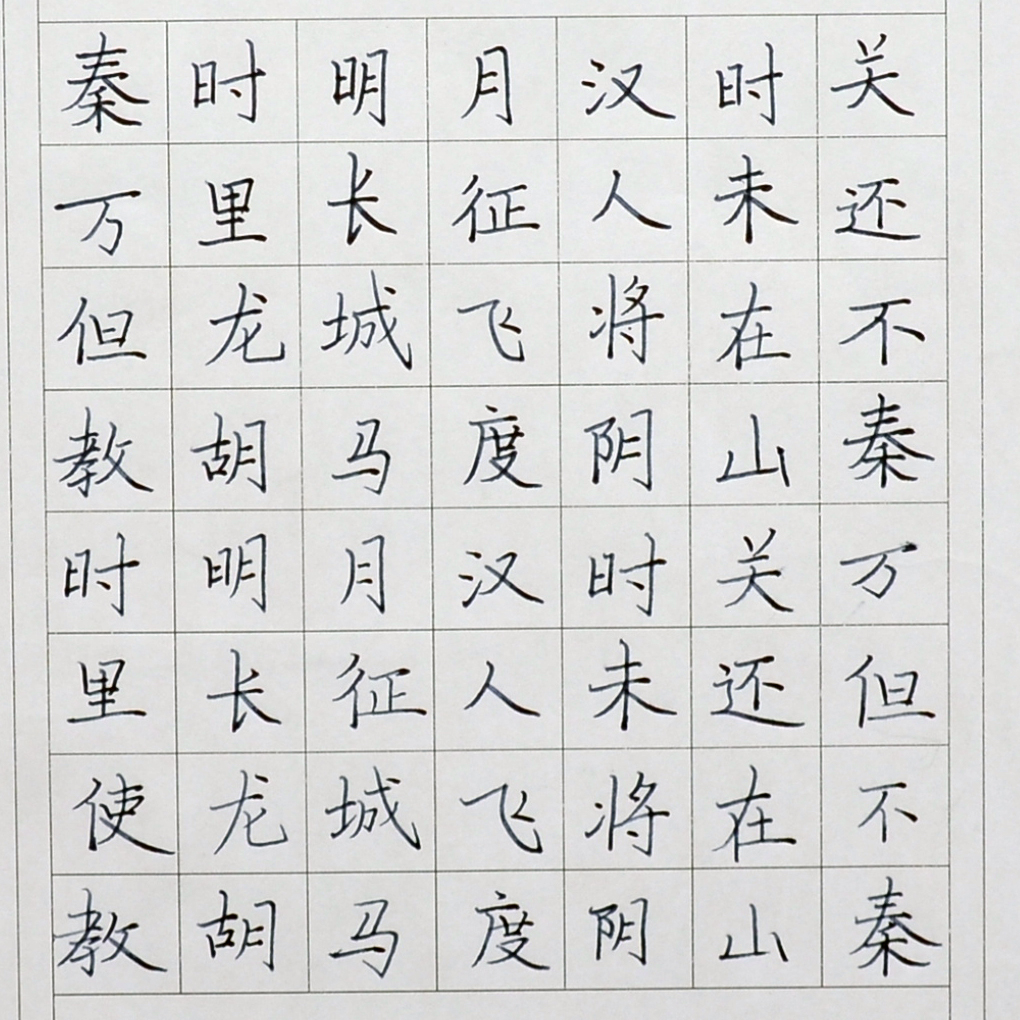 秦时明月汉时关
万里长征人未还
但龙城飞将在不
教胡马度阴山秦
时明月汉时关万
里长征人未还但
使龙城飞将在不
教胡马度阴山秦